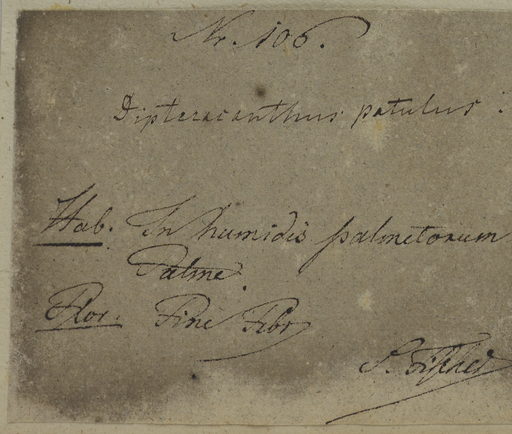 Nr. 106.
Dipteracanthus patulus.
Hab. In humidis palmetorum
Palme.
Flor. Fine Febr
S. Fischer